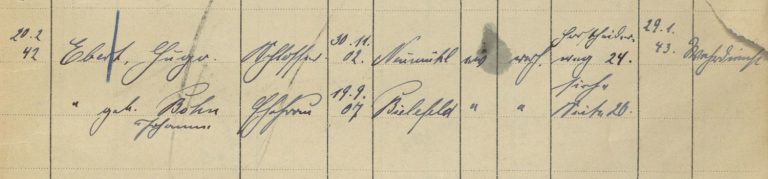 20.2. 42 Ebert, Hugo. Schlosser. 30.11. 02. Neumühl verh. weg 24. 29.1. 43. Wehrdienst
" geb. Bohn Ehefrau 19.9. 07 Bielefeld " " siehe Seite 20.
Johanna